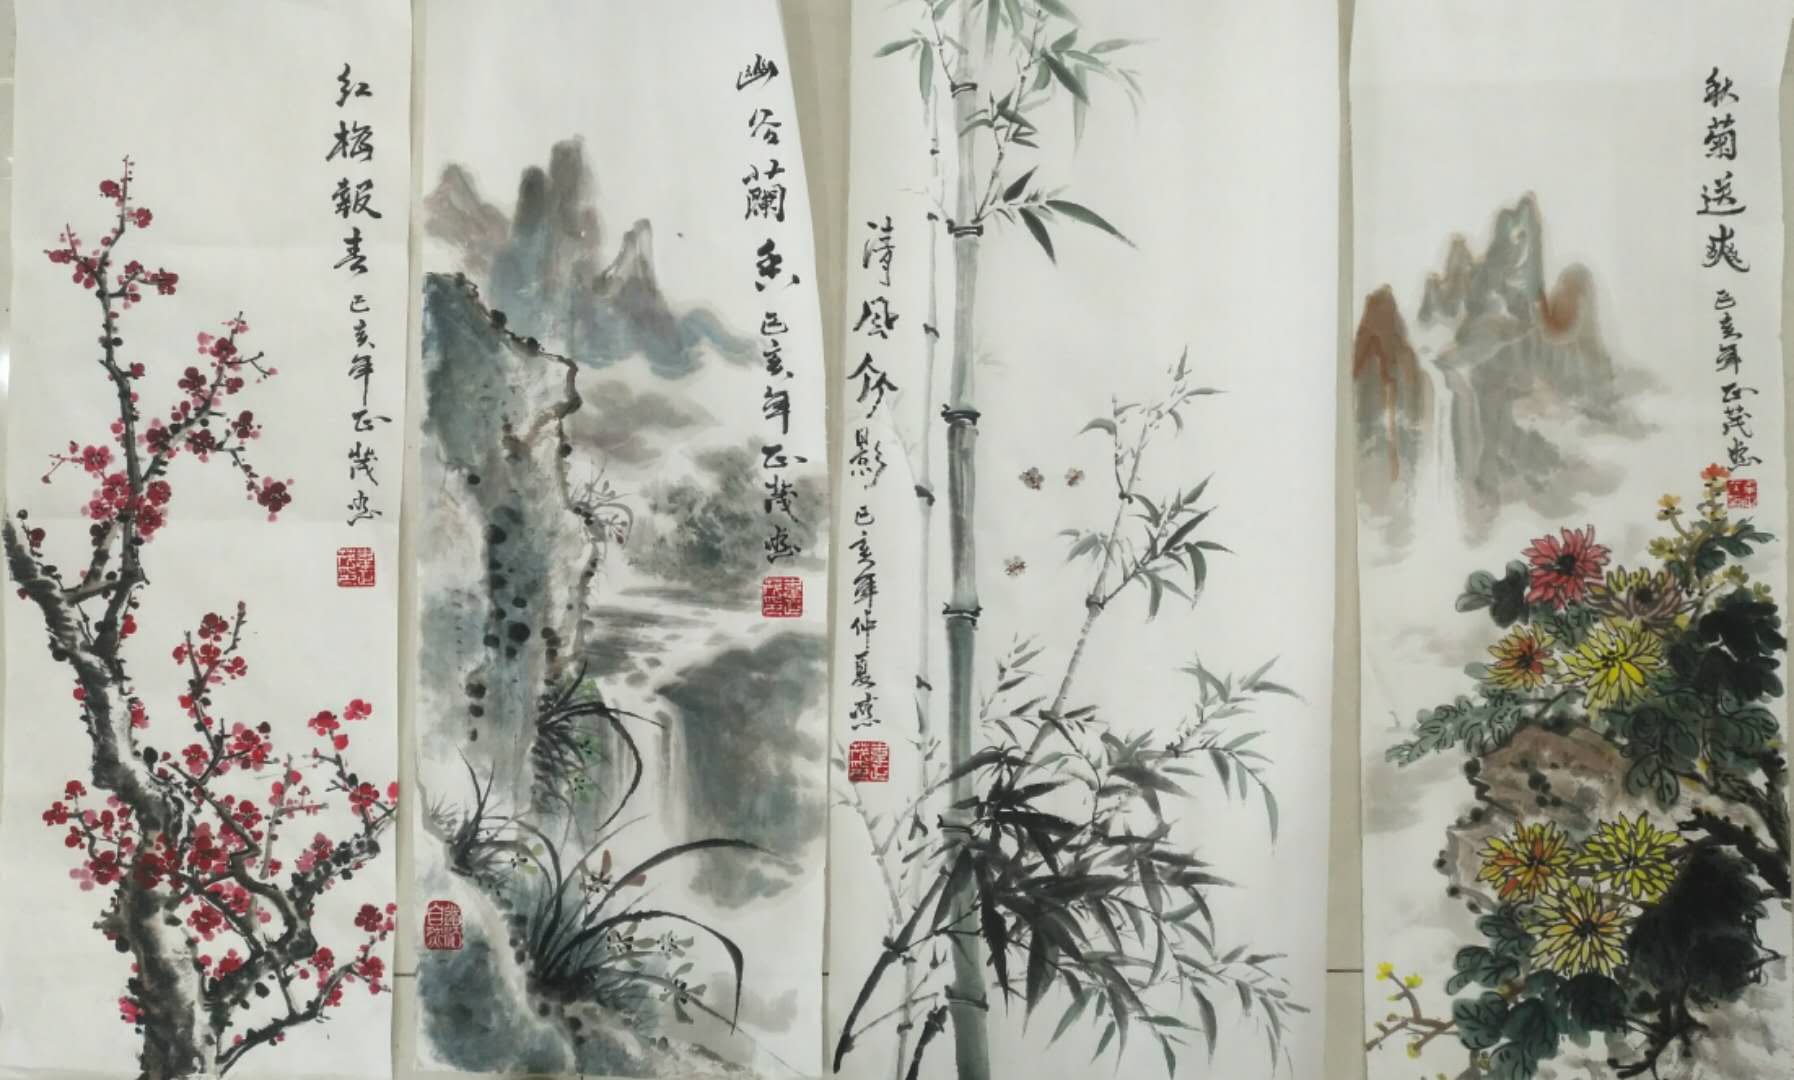 红梅報春 己亥年正茂画
幽谷蘭香 己亥年正茂画
清风弄影 己亥年仲夏
秋菊送爽 己亥年正茂画
自然